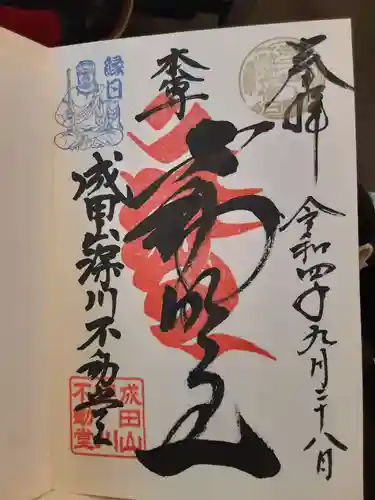 奉拝
令和四年九月二十八日
本尊
不動明王
縁日
成田山深川不動堂
成田山
不動堂